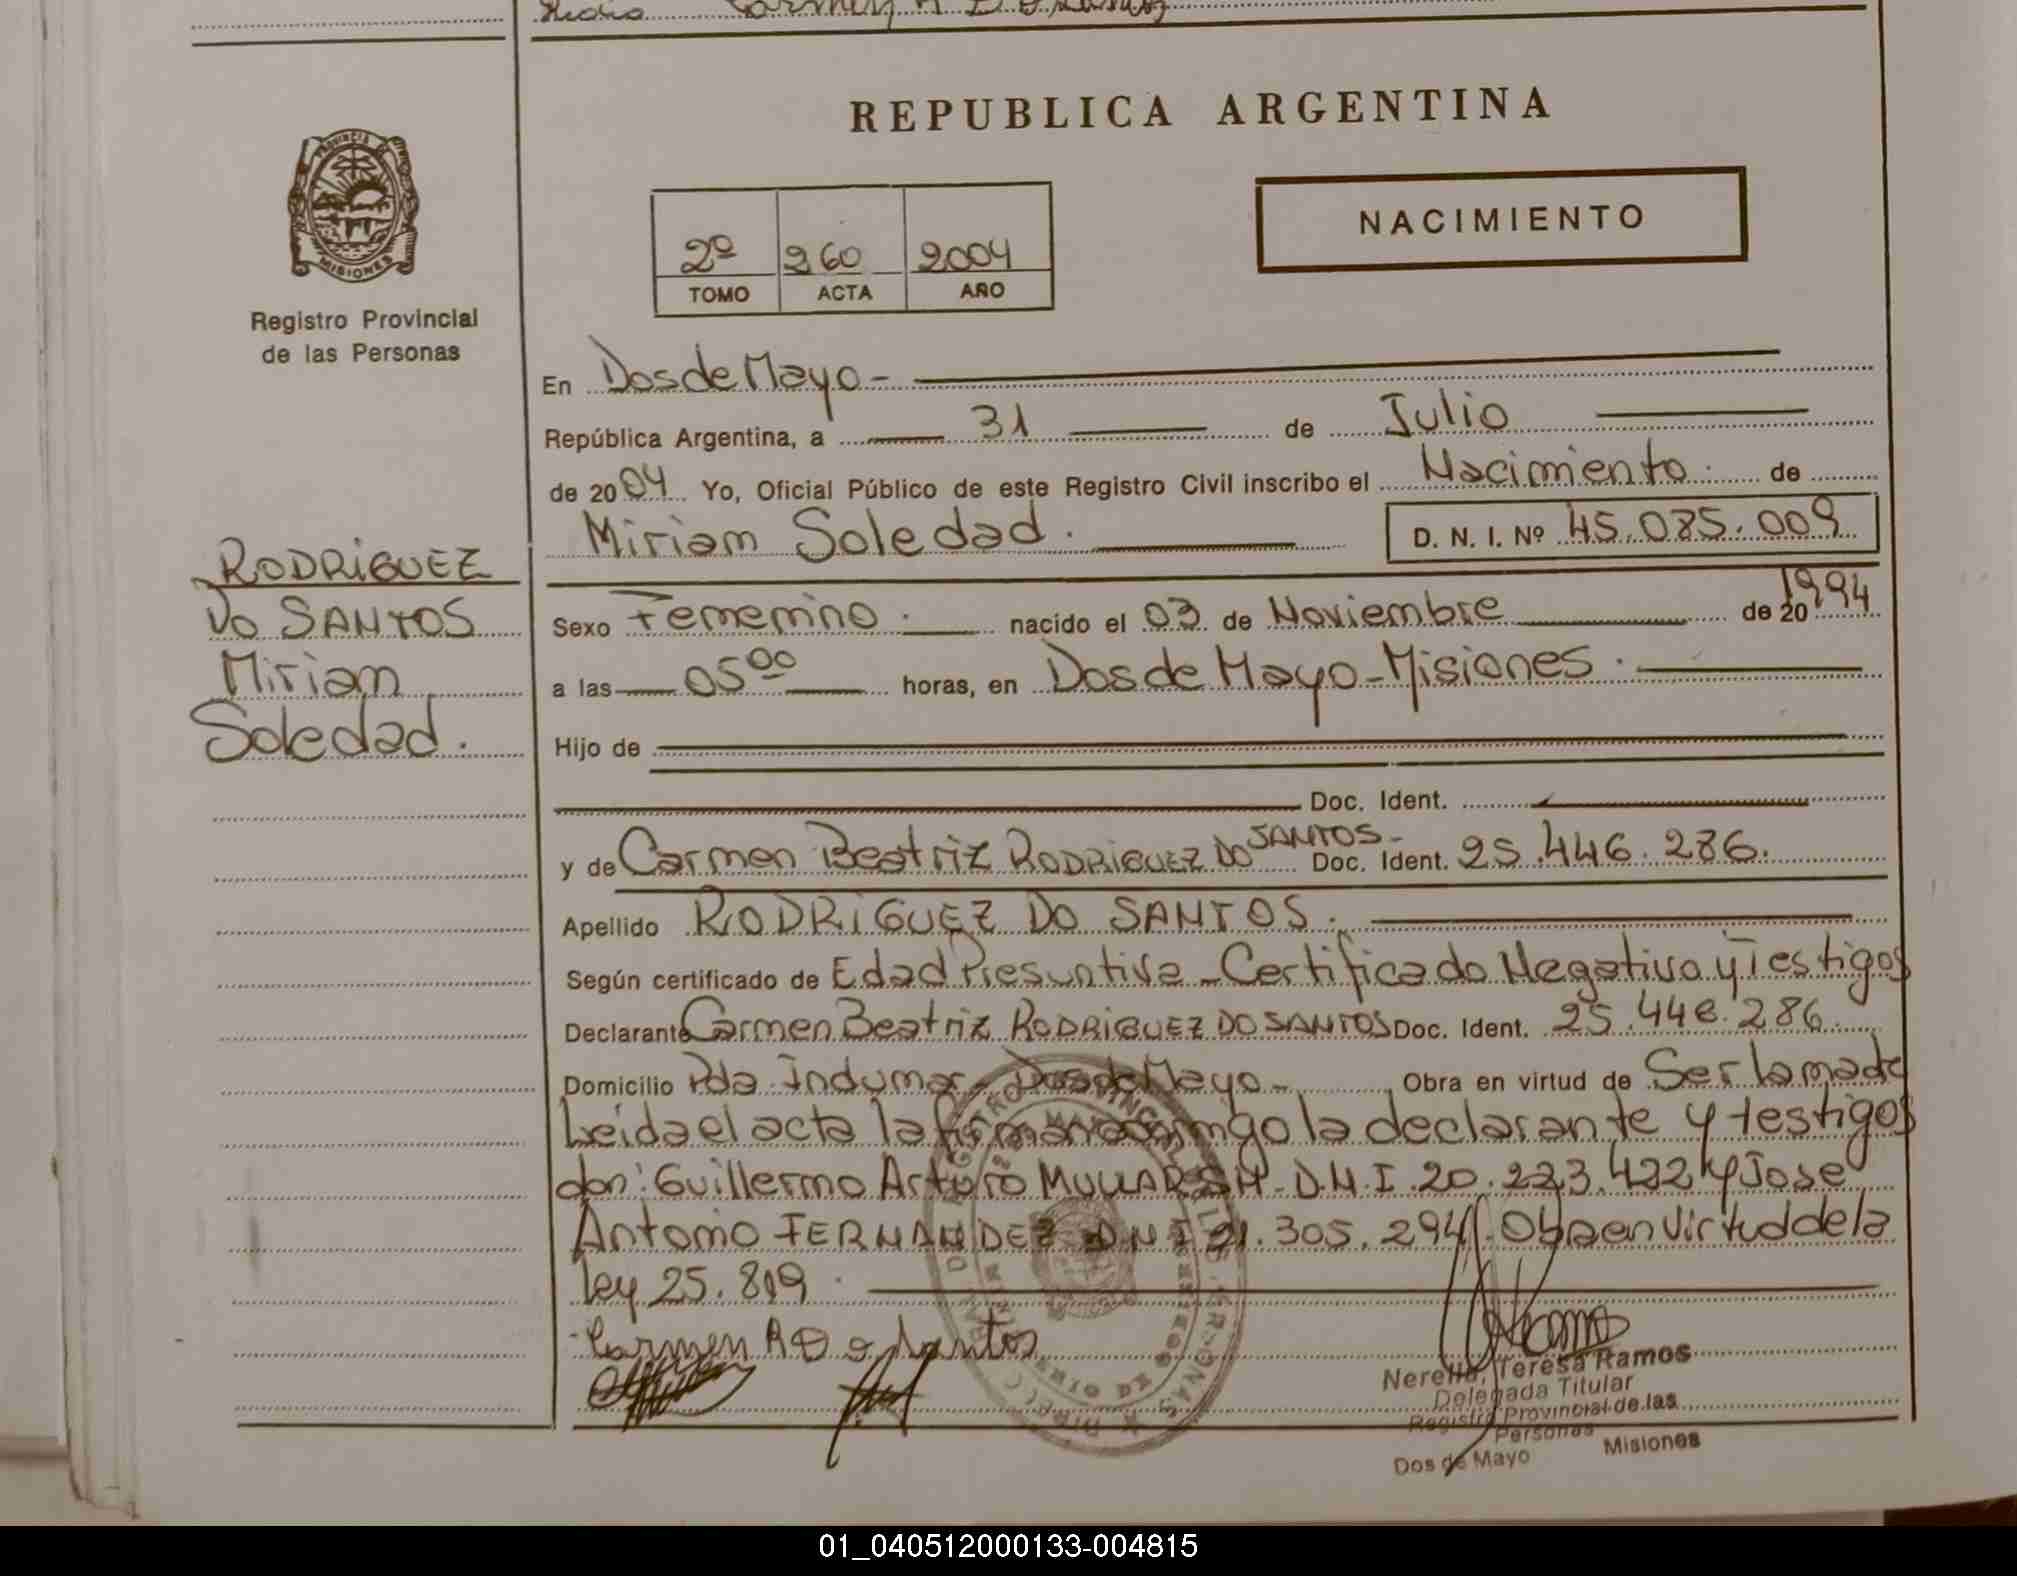 Carmen R D o Santos
REPUBLICA ARGENTINA
PROVINCIA DE
MISIONES
Registro Provincial
de las Personas
2º 260 2004
TOMO ACTA AÑO
NACIMIENTO
En Dos de Mayo -
República Argentina, a 31 de Julio
de 2004 Yo, Oficial Público de este Registro Civil inscribo el Nacimiento. de
Miriam Soledad. D. N. I. Nº 45.085.009
RODRIGUEZ
DO SANTOS
Miriam
Soledad.
Sexo Femenino. nacido el 03 de Noviembre de 20 1994
a las 05 00 horas, en Dos de Mayo - Misiones.
Hijo de
Doc. Ident.
y de Carmen Beatriz RODRIGUEZ DO SANTOS - Doc. Ident. 25.446.286.
Apellido RODRIGUEZ DO SANTOS.
Según certificado de Edad Presuntiva - Certificado Negativo y Testigos
Declarante Carmen Beatriz RODRIGUEZ DO SANTOS Doc. Ident. 25.446.286.
Domicilio Pda. Indumar - Dos de Mayo - Obra en virtud de Ser la madre
Leida el acta la firman conmigo la declarante y testigos
don: Guillermo Arturo D.N.I. 20.223.422 y Jose
Antonio FERNANDEZ D.N.I 21.305.294. Obra en virtud de la
ley 25.819.
Carmen R D o Santos
Nerella, Teresa Ramos
Delegada Titular
Registro Provincial de las
Personas
Dos de Mayo Misiones
01_040512000133-004815